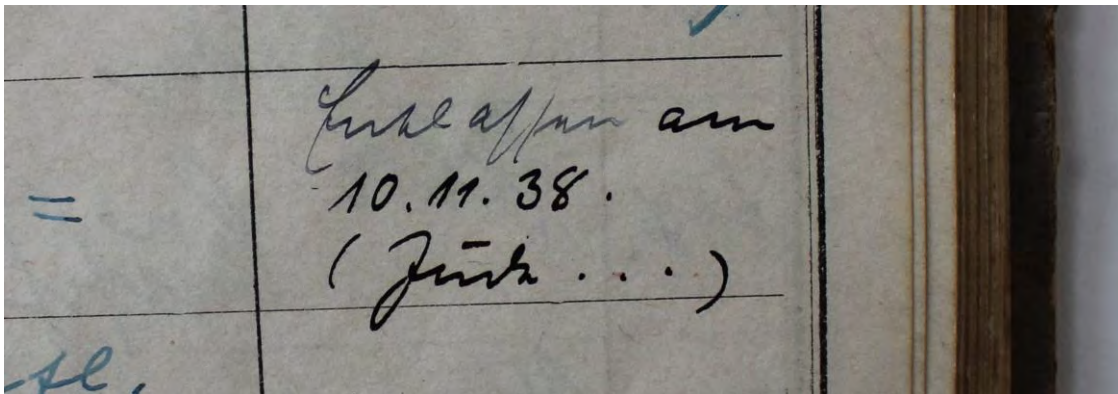 Entlassen am
10.11.38.
=
(Jude . . .)
tl.